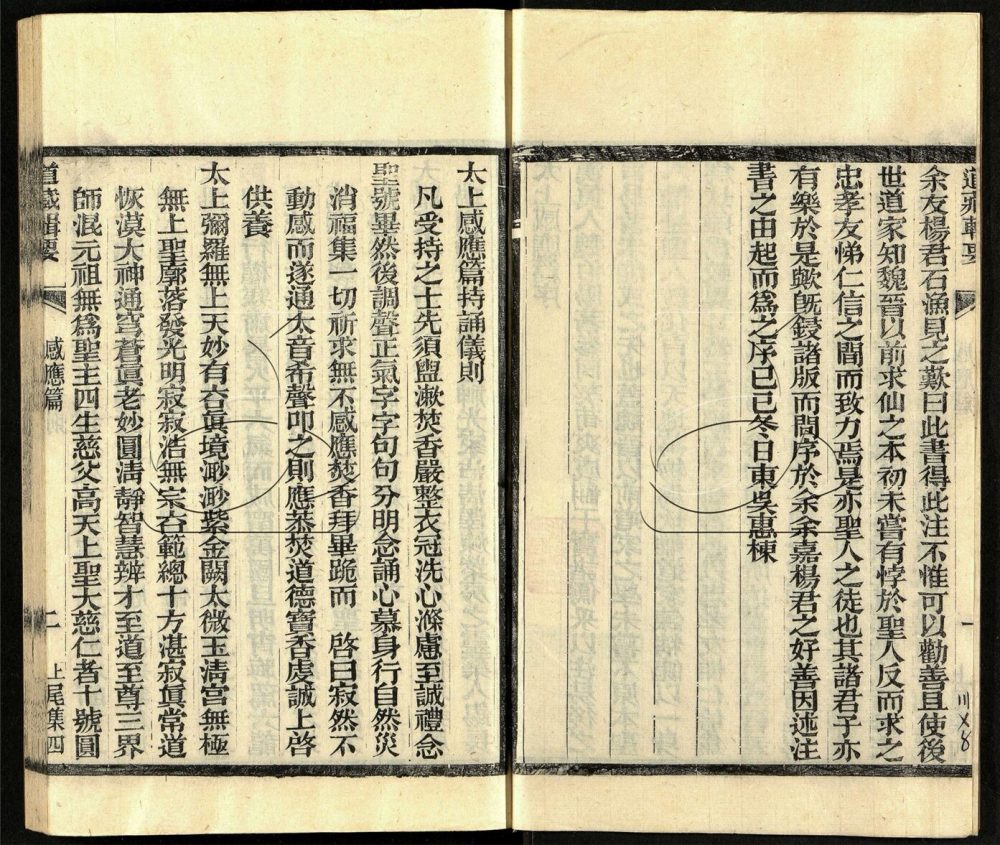 道藏輯要
一
余友楊君石漁見之歎曰此書得此注不惟可以勸善且使後
世道家知魏晉以前求仙之本初未嘗有悖於聖人反而求之
忠孝友悌仁信之間而致力焉是亦聖人之徒也其諸君子亦
有樂於是歟旣鋟諸版而問序於余余嘉楊君之好善因述注
書之由起而爲之序己巳冬日東吳惠棟
太上感應篇持誦儀則
凡受持之士先須盥漱焚香嚴整衣冠洗心滌慮至誠禮念
聖號畢然後調聲正氣字字句句分明念誦心慕身行自然災
消福集一切祈求無不感應焚香拜畢跪而 啓曰寂然不
動感而遂通太音希聲叩之則應恭焚道德寶香虔誠上啓
供養
太上彌羅無上天妙有𤣥眞境渺渺紫金闕太微玉淸宮無極
無上聖廓落發光明寂寂浩無宗𤣥範總十方湛寂眞常道
恢漠大神通穹蒼眞老妙圓淸靜智慧辨才至道至尊三界
師混元祖無爲聖主四生慈父高天上聖大慈仁者十號圓
道藏輯要 感應篇 二 上尾集四